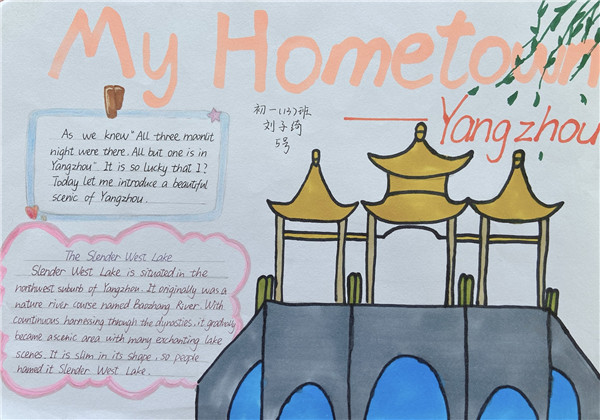 My Hometown
——Yangzhou
初一(13)班
刘子琦
5号
As we knew "All three moonlit
night were there. All but one is in
Yangzhou" It is so lucky that I?
Today let me introduce a beautiful
scenic of Yangzhou.
The Slender West Lake
Slender West Lake is situated in the
northwest suburb of Yangzhou. It originally was a
nature river course named Baozhang River. With
countinuous harnessing through the dynasties, it gradualy
became a scenic area with many enchanting lake
scenes. It is slim in its shape, so people
named it Slender West Lake.